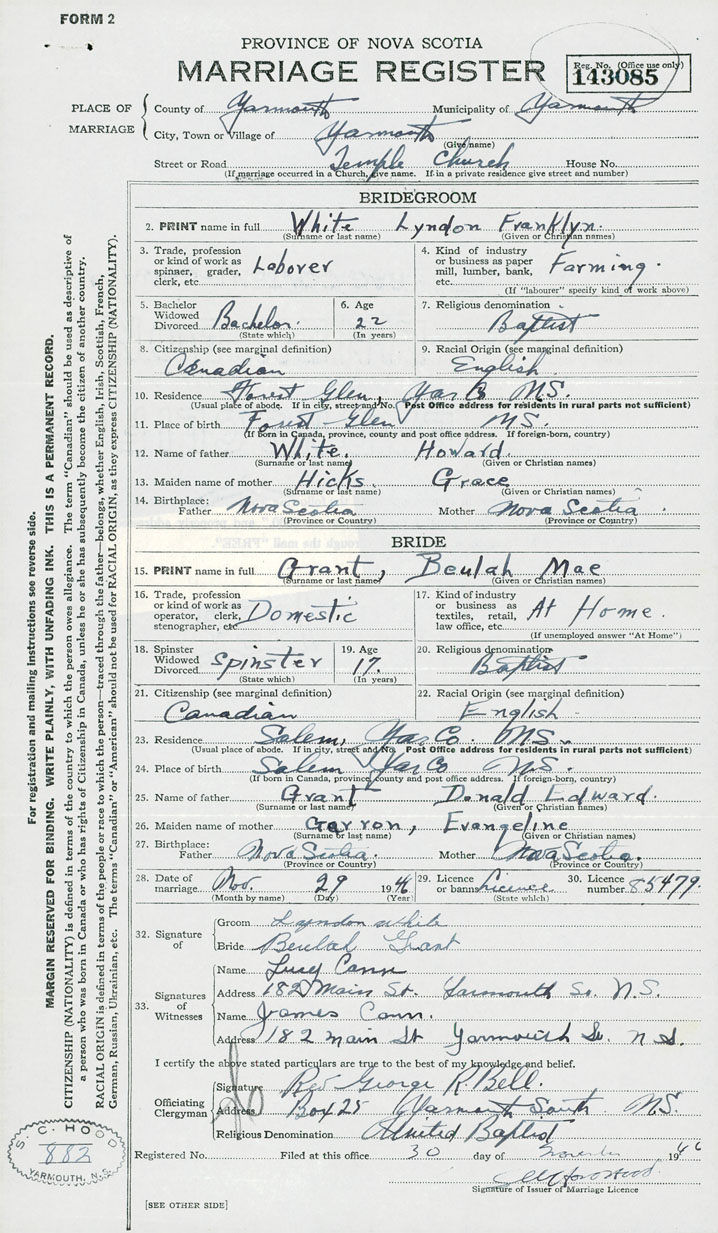 FORM 2
PROVINCE OF NOVA SCOTIA
MARRIAGE REGISTER
Reg. No. (Office use only)
143085
PLACE OF MARRIAGE
County of Yarmouth Municipality of Yarmouth
City, Town or Village of Yarmouth
(Give name)
Street or Road Temple Church House No.
(If marriage occurred in a Church, give name. If in a private residence give street and number)
BRIDEGROOM
2. PRINT name in full White Lyndon Franklyn.
(Surname or last name) (Given or Christian names)
3. Trade, profession or kind of work as spinner, grader, clerk, etc. Laborer
4. Kind of industry or business as paper mill, lumber, bank, etc. Farming.
(If "labourer" specify kind of work above)
5. Bachelor Widowed Divorced Bachelor.
(State which)
6. Age 22
(In years)
7. Religious denomination Baptist
8. Citizenship (see marginal definition) Canadian
9. Racial Origin (see marginal definition) English.
10. Residence Forest Glen, Yar Co N.S.
(Usual place of abode. If in city, street and No. Post Office address for residents in rural parts not sufficient)
11. Place of birth Forest Glen N.S.
(If born in Canada, province, county and post office address. If foreign-born, country)
12. Name of father White. Howard.
(Surname or last name) (Given or Christian names)
13. Maiden name of mother Hicks. Grace
(Surname or last name) (Given or Christian names)
14. Birthplace: Father Nova Scotia Mother Nova Scotia.
(Province or Country) (Province or Country)
BRIDE
15. PRINT name in full Grant, Beulah Mae
(Surname or last name) (Given or Christian names)
16. Trade, profession or kind of work as operator, clerk, stenographer, etc Domestic
17. Kind of industry or business as textiles, retail, law office, etc. At Home.
(If unemployed answer "At Home")
18. Spinster Widowed Divorced Spinster
(State which)
19. Age 17.
(In years)
20. Religious denomination Baptist
21. Citizenship (see marginal definition) Canadian
22. Racial Origin (see marginal definition) English
23. Residence Salem, Yar Co. N.S.
(Usual place of abode. If in city, street and No. Post Office address for residents in rural parts not sufficient)
24. Place of birth Salem Yar Co N.S.
(If born in Canada, province, county and post office address. If foreign-born, country)
25. Name of father Grant Donald Edward.
(Surname or last name) (Given or Christian names)
26. Maiden name of mother Garron, Evangeline
(Surname or last name) (Given or Christian names)
27. Birthplace: Father Nova Scotia. Mother Nova Scotia.
(Province or Country) (Province or Country)
28. Date of marriage Nov. 29 1946
(Month by name) (Day) (Year)
29. Licence or banns Licence
(State which)
30. Licence number 85479.
32. Signature of
Groom Lyndon White
Bride Beulah Grant
33. Signatures of Witnesses
Name Lucy Cann
Address 182 Main St. Yarmouth So. N.S.
Name James Cann.
Address 182 Main St Yarmouth So. N.S.
I certify the above stated particulars are true to the best of my knowledge and belief.
Officiating Clergyman
Signature Rev George R Bell.
Address Box 25 Yarmouth South N.S.
Religious Denomination United Baptist
Registered No. Filed at this office 30 day of November 1946
Signature of Issuer of Marriage Licence
[SEE OTHER SIDE]
For registration and mailing instructions see reverse side.
MARGIN RESERVED FOR BINDING. WRITE PLAINLY, WITH UNFADING INK. THIS IS A PERMANENT RECORD.
CITIZENSHIP (NATIONALITY) is defined in terms of the country to which the person owes allegiance. The term "Canadian" should be used as descriptive of
a person who was born in Canada or who has rights of Citizenship in Canada, unless he or she has subsequently become the citizen of another country.
RACIAL ORIGIN is defined in terms of the people or race to which the person—traced through the father—belongs, whether English, Irish, Scottish, French,
German, Russian, Ukrainian, etc. The terms "Canadian" or "American" should not be used for RACIAL ORIGIN, as they express CITIZENSHIP (NATIONALITY).
S. C. HOOD
882
YARMOUTH, N.S.